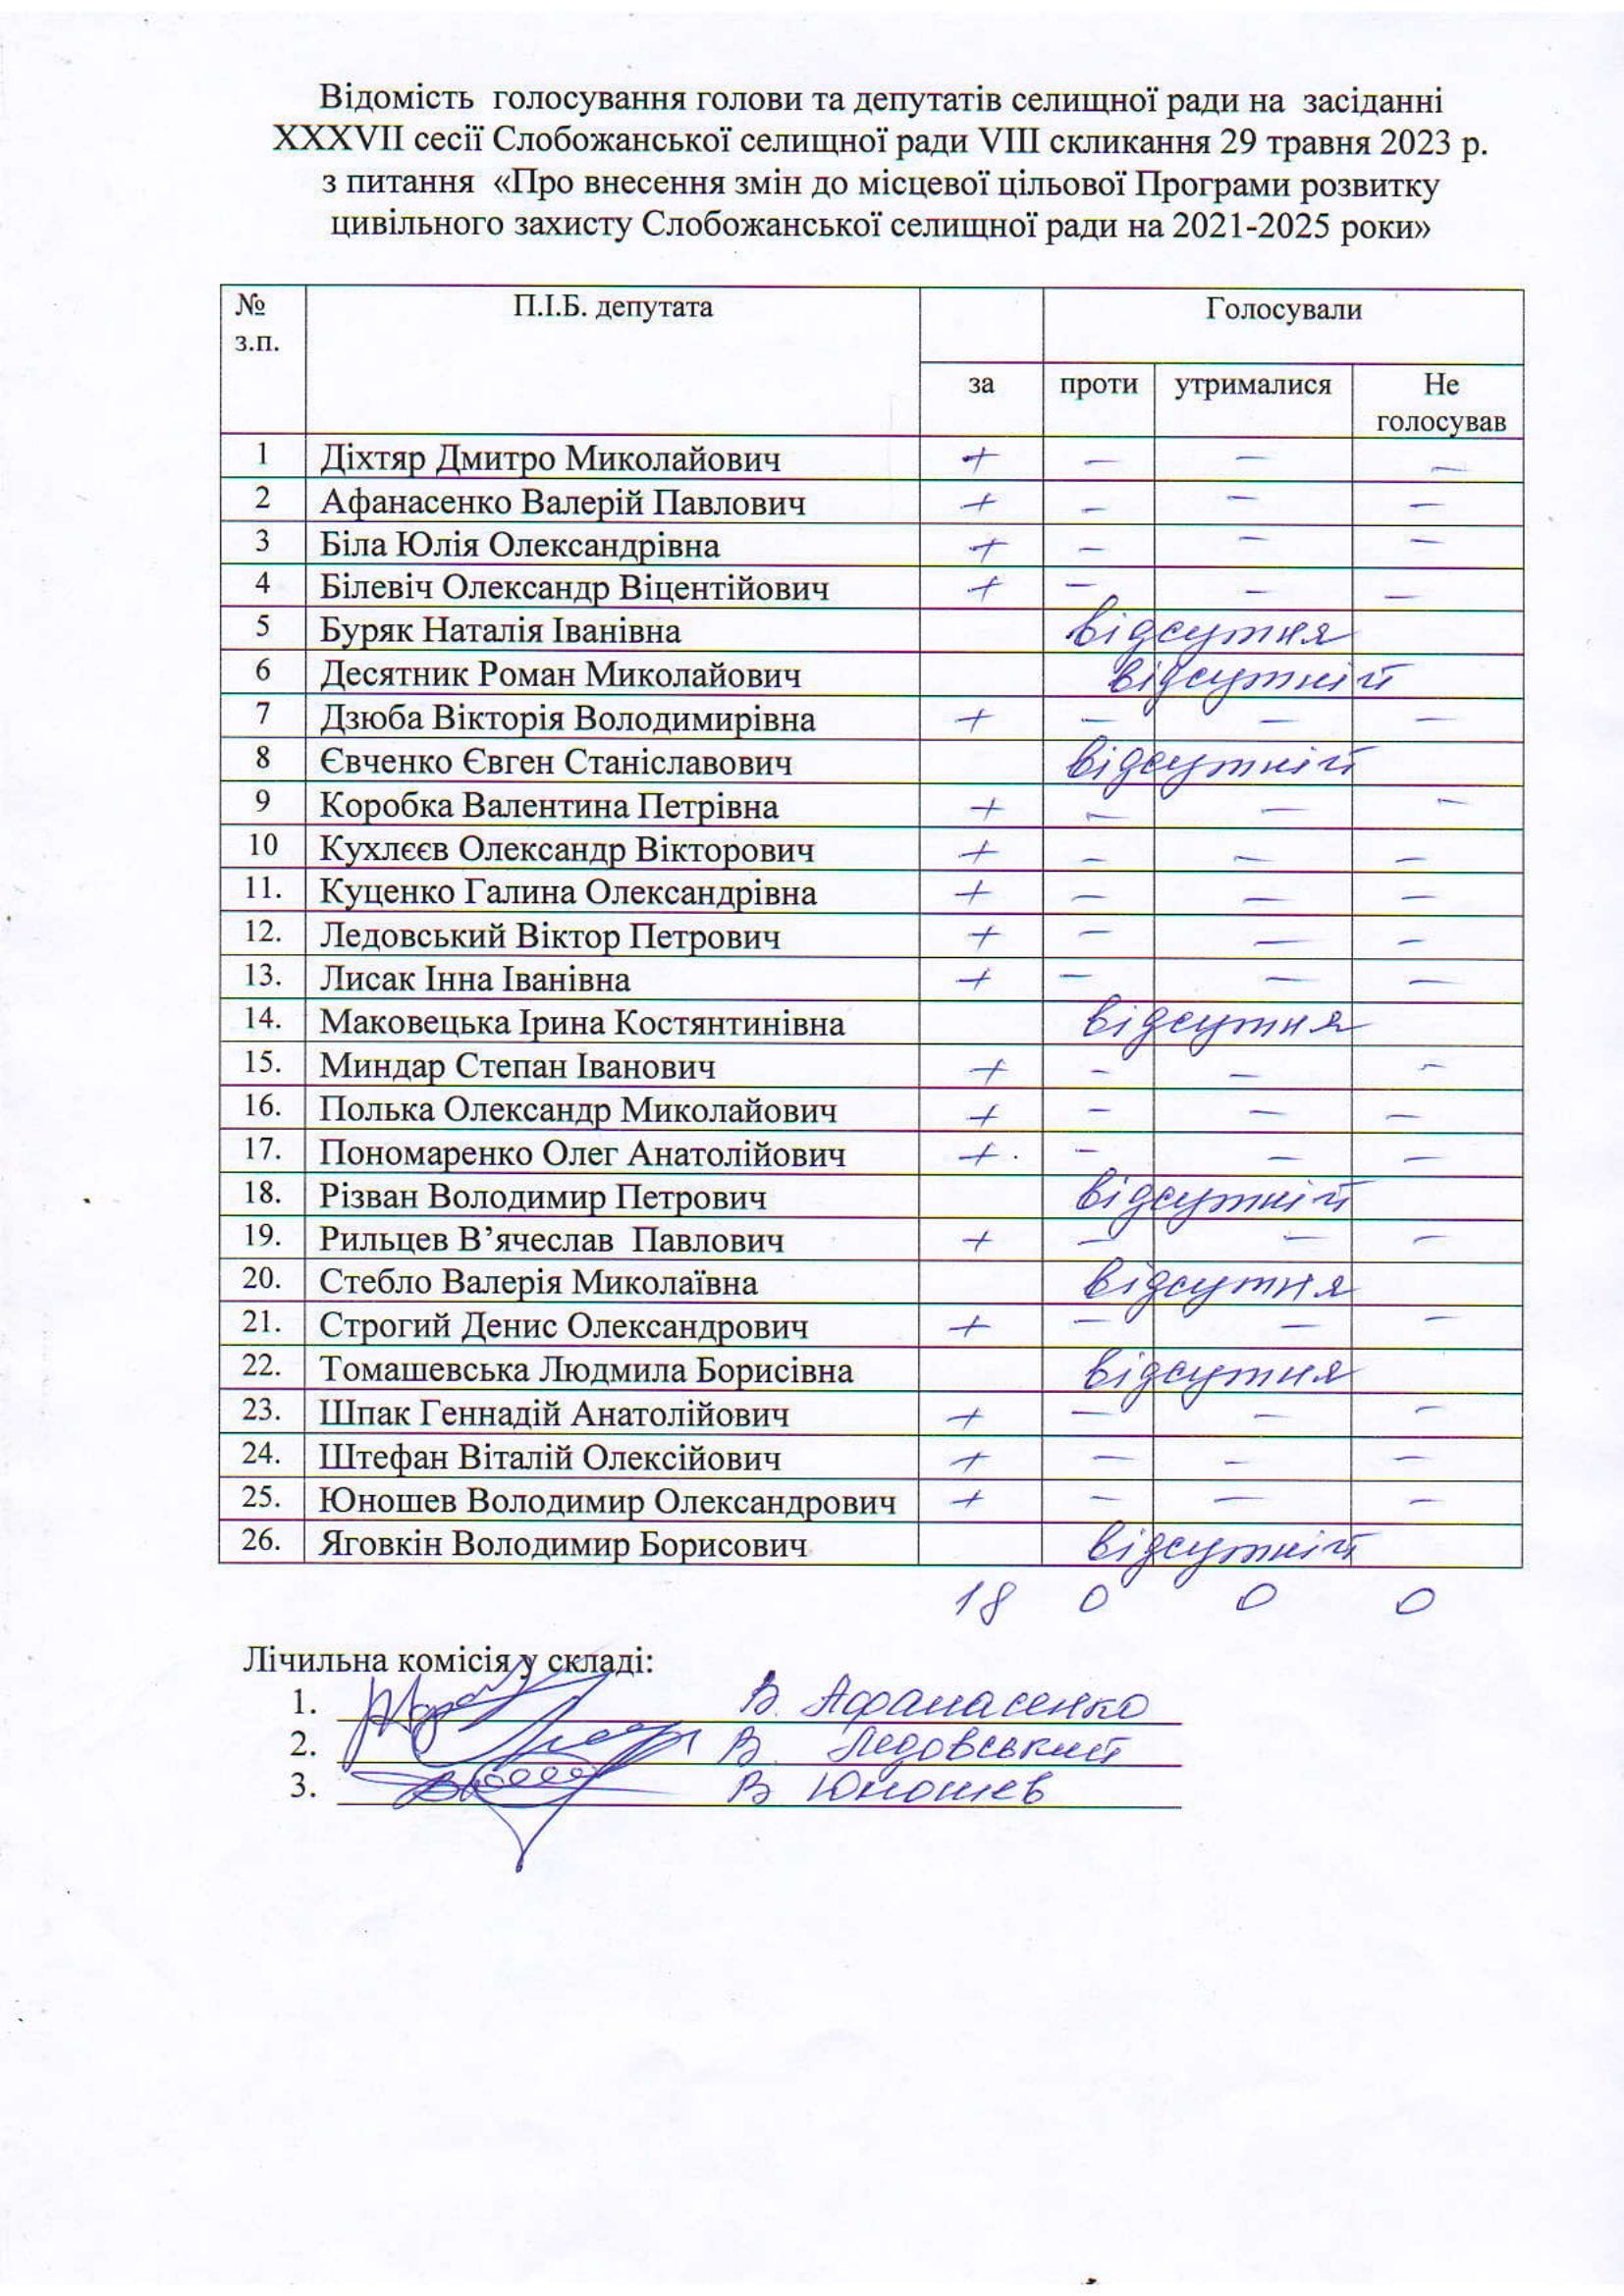 Відомість голосування голови та депутатів селищної ради на засіданні
XXXVII сесії Слобожанської селищної ради VIII скликання 29 травня 2023 р.
з питання «Про внесення змін до місцевої цільової Програми розвитку
цивільного захисту Слобожанської селищної ради на 2021-2025 роки»
№ з.п. П.І.Б. депутата Голосували
за проти утрималися Не голосував
1 Діхтяр Дмитро Миколайович + – – –
2 Афанасенко Валерій Павлович + – – –
3 Біла Юлія Олександрівна + – – –
4 Білевіч Олександр Віцентійович + – – –
5 Буряк Наталія Іванівна відсутня
6 Десятник Роман Миколайович відсутній
7 Дзюба Вікторія Володимирівна + – – –
8 Євченко Євген Станіславович відсутній
9 Коробка Валентина Петрівна + – – –
10 Кухлєєв Олександр Вікторович + – – –
11. Куценко Галина Олександрівна + – – –
12. Ледовський Віктор Петрович + – – –
13. Лисак Інна Іванівна + – – –
14. Маковецька Ірина Костянтинівна відсутня
15. Миндар Степан Іванович + – – –
16. Полька Олександр Миколайович + – – –
17. Пономаренко Олег Анатолійович + – – –
18. Різван Володимир Петрович відсутній
19. Рильцев В’ячеслав Павлович + – – –
20. Стебло Валерія Миколаївна відсутня
21. Строгий Денис Олександрович + – – –
22. Томашевська Людмила Борисівна відсутня
23. Шпак Геннадій Анатолійович + – – –
24. Штефан Віталій Олексійович + – – –
25. Юношев Володимир Олександрович + – – –
26. Яговкін Володимир Борисович відсутній
18 0 0 0
Лічильна комісія у складі:
1. В. Афанасенко
2. В. Ледовський
3. В Юношев